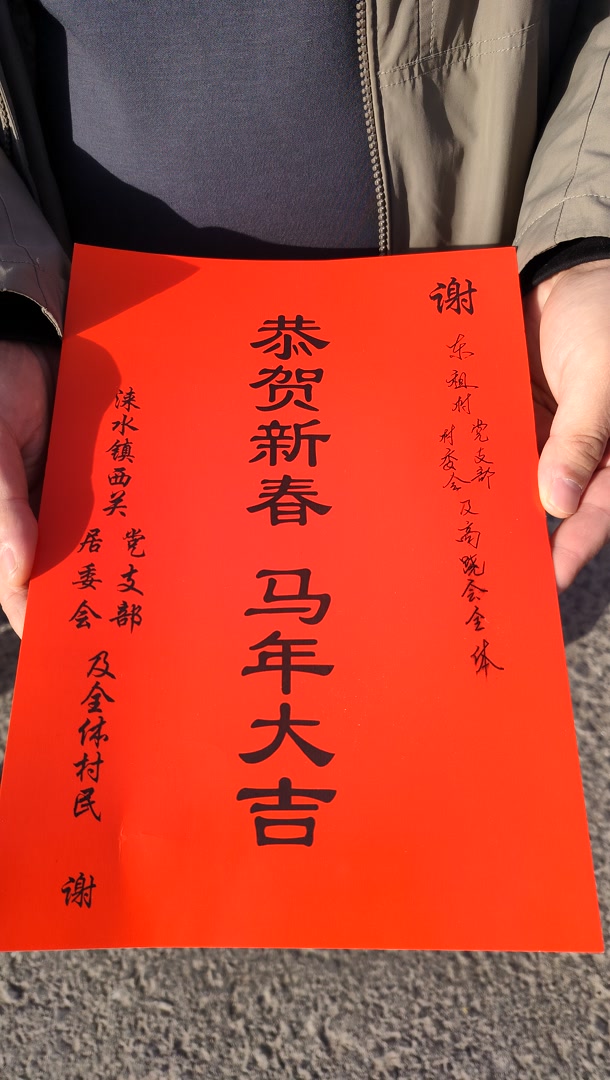 谢
东祖村
党支部
村委会
及高跷会全体
恭贺新春 马年大吉
涞水镇西关
党支部
居委会
及全体村民
谢